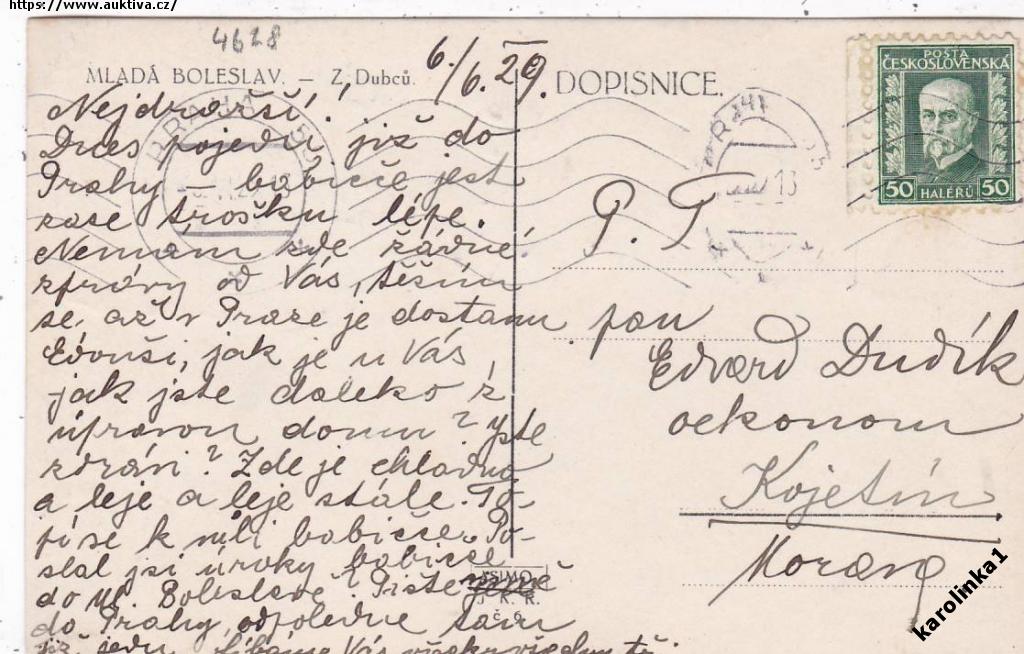 https://www.auktiva.cz/
4628
MLADÁ BOLESLAV. – Z Dubců.
6/6.29.
DOPISNICE.
POŠTA
ČESKOSLOVENSKÁ
50 HALÉŘŮ 50
Nejdražší,
Dnes pojedu již do
Prahy – babičce jest
zase trošku lépe.
Nemám zde žádné
zprávy od Vás, těším
se, až v Praze je dostanu
Edouši, jak je u Vás,
jak jste daleko s
úpravou domu? Jste
zdrávi? Zde je chladno
a leje a leje stále. To-
pí se k vůli babičce. Po-
slal jsi úroky babičce
do Ml. Boleslavě? Pište
do Prahy, odpoledne tam
již jedu. Líbáme Vás
P. T.
pan
Edvard Dudík
oekonom
Kojetín
Morava
J. K. R.
karolinka1